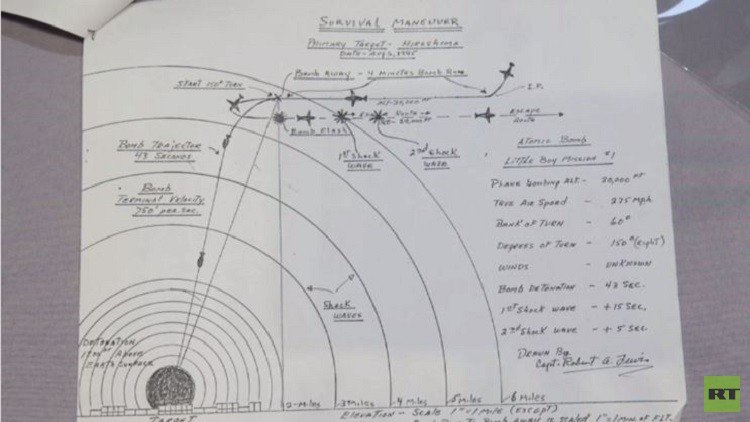 SURVIVAL MANEUVER
PRIMARY TARGET - HIROSHIMA
BOMB AWAY - 4 MINUTES BOMB RUN
START 150° TURN
I.P.
ESCAPE
ROUTE
BOMB FLASH
1ST SHOCK
WAVE
2ND SHOCK
WAVE
BOMB TRAJECTOR
43 SECONDS
BOMB
TERMINAL VELOCITY
750' PER. SEC.
SHOCK
WAVES
ATOMIC BOMB
LITTLE BOY MISSION #1
PLANE BOMBING ALT. - 30,000 FT
TRUE AIR SPEED - 275 MPH.
BANK OF TURN - 60°
DEGREES OF TURN - 150° (RIGHT)
WINDS - UNKNOWN
BOMB DETONATION - 43 SEC.
1ST SHOCK WAVE - + 15 SEC.
2ND SHOCK WAVE - + 5 SEC.
DRAWN BY
CAPT. Robert A. Lewis
DETONATION
ABOVE
EARTH SURFACE
TARGET
2-MILES
3 MILES
4 MILES
5 MILES
6 MILES
ELEVATION - SCALE 1"=1 MILE (EXCEPT)
RT